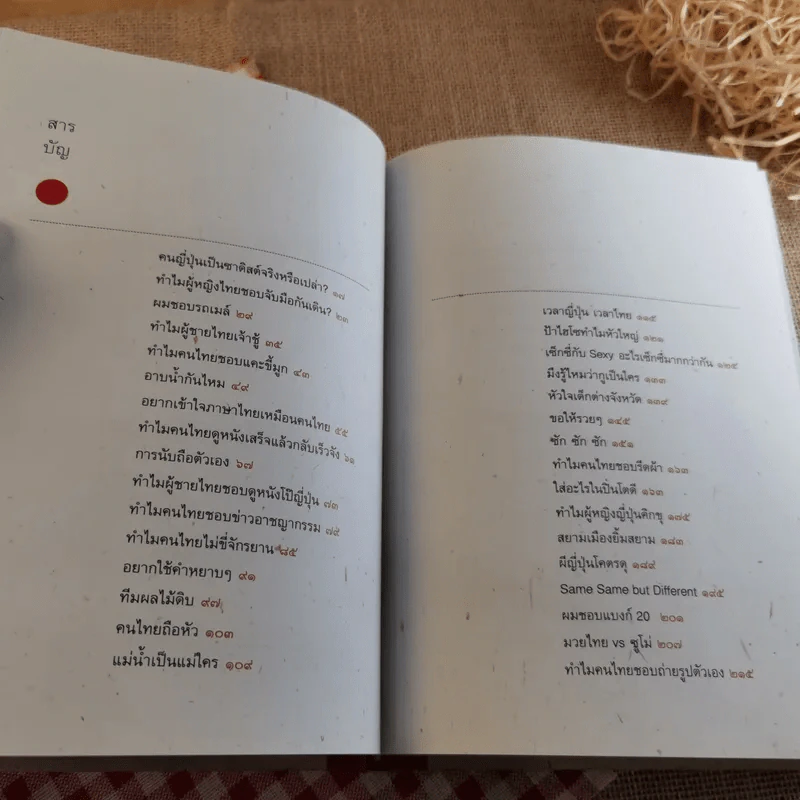 สาร
บัญ
คนญี่ปุ่นเป็นซาดิสต์จริงหรือเปล่า? ๑๗
ทำไมผู้หญิงไทยชอบจับมือกันเดิน? ๒๓
ผมชอบรถเมล์ ๒๙
ทำไมผู้ชายไทยเจ้าชู้ ๓๕
ทำไมคนไทยชอบแคะขี้มูก ๔๓
อาบน้ำกันไหม ๔๙
อยากเข้าใจภาษาไทยเหมือนคนไทย ๕๕
ทำไมคนไทยดูหนังเสร็จแล้วกลับเร็วจัง ๖๑
การนับถือตัวเอง ๖๗
ทำไมผู้ชายไทยชอบดูหนังโป๊ญี่ปุ่น ๗๓
ทำไมคนไทยชอบข่าวอาชญากรรม ๗๙
ทำไมคนไทยไม่ขี่จักรยาน ๘๕
อยากใช้คำหยาบๆ ๙๑
ทีมผลไม้ดิบ ๙๗
คนไทยถือหัว ๑๐๓
แม่น้ำเป็นแม่ใคร ๑๐๙
เวลาญี่ปุ่น เวลาไทย ๑๑๕
ป้าไฮโซทำไมหัวใหญ่ ๑๒๑
เซ็กซี่กับ Sexy อะไรเซ็กซี่มากกว่ากัน ๑๒๕
มึงรู้ไหมว่ากูเป็นใคร ๑๓๓
หัวใจเด็กต่างจังหวัด ๑๓๙
ขอให้รวยๆ ๑๔๕
ซัก ซัก ซัก ๑๕๑
ทำไมคนไทยชอบรีดผ้า ๑๖๓
ใส่อะไรในปิ่นโตดี ๑๖๓
ทำไมผู้หญิงญี่ปุ่นคิกขุ ๑๗๕
สยามเมืองยิ้มสยาม ๑๘๓
ผีญี่ปุ่นโคตรดุ ๑๘๙
Same Same but Different ๑๙๕
ผมชอบแบงก์ 20 ๒๐๑
มวยไทย vs ซูโม่ ๒๐๗
ทำไมคนไทยชอบถ่ายรูปตัวเอง ๒๑๕